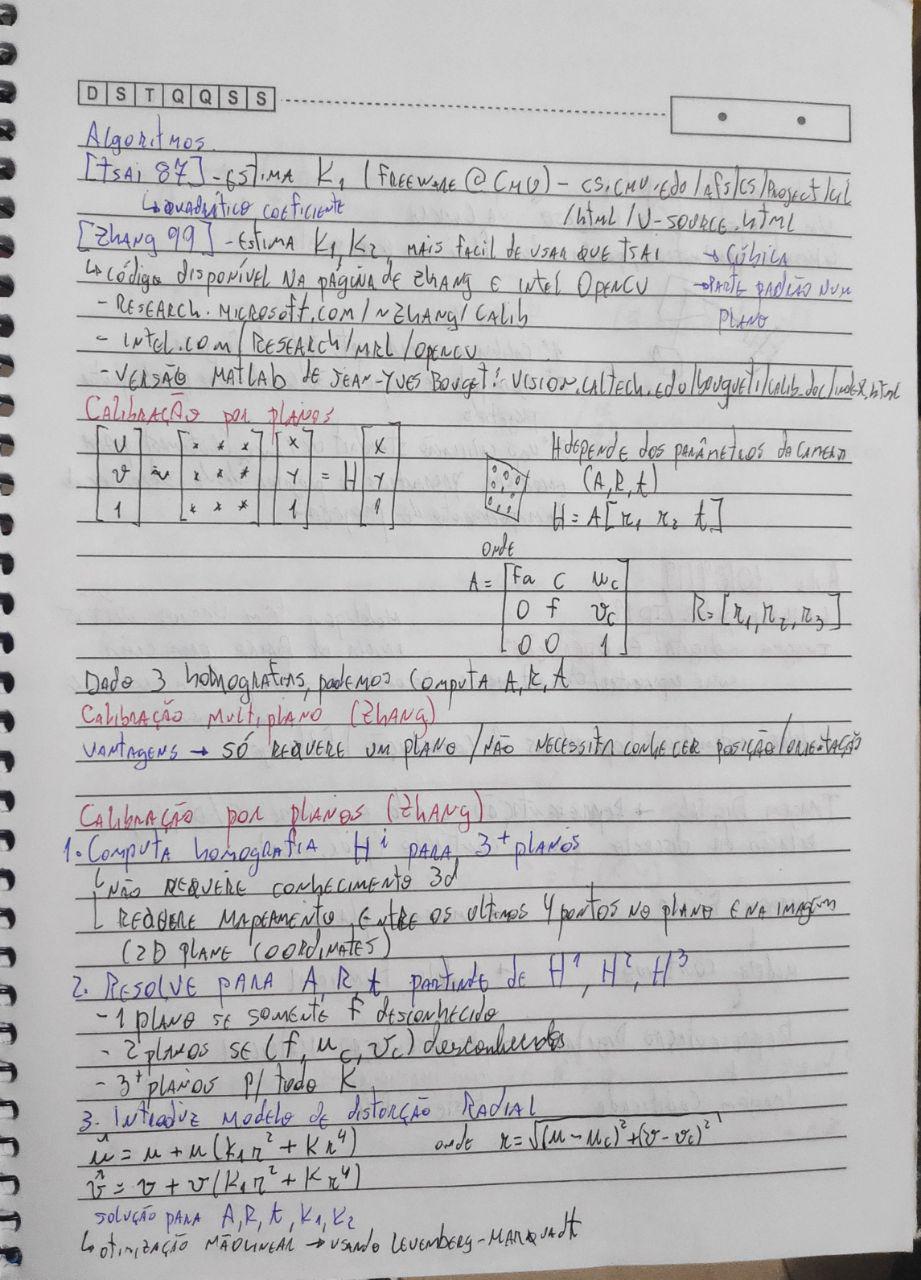 D S T Q Q S S
Algoritmos
[TSAI 87] - ESTIMA K₁ (FREEWARE @ CMU) - CS.CMU.EDU/AFS/CS/PROJECT/CIL
↳ QUADRÁTICO COEFICIENTE /html/V-SOURCE.html
[Zhang 99] - ESTIMA K₁, K₂, MAIS FACIL DE USAR QUE TSAI → CÚBICA
↳ Código DISPONÍVEL NA PÁGINA DE ZHANG E INTEL OPENCV → PARTE PADRÃO NUM
- RESEARCH.MICROSOFT.COM/~ZHANG/CALIB PLANO
- INTEL.COM/RESEARCH/MRL/OPENCV
- VERSÃO MATLAB DE JEAN-YVES BOUGET: VISION.CALTECH.EDU/bouguetj/calib_doc/index.html
CALIBRAÇÃO POR PLANOS
[U * * * X X H depende dos parâmetros da câmera
v ~ * * * Y = H Y (A, R, t)
1] * * * 1 1 H = A[r₁ r₂ t]
onde
A = [fa c u_c
0 f v_c R = [r₁, r₂, r₃]
0 0 1]
Dado 3 homografias, podemos computa A, R, t
Calibração Multiplano (Zhang)
VANTAGENS → SÓ REQUERE UM PLANO / NÃO NECESSITA CONHECER POSIÇÃO/ORIENTAÇÃO
CALIBRAÇÃO POR PLANOS (Zhang)
1. Computa homografia Hⁱ PARA 3⁺ planos
↳ NÃO REQUERE CONHECIMENTO 3d
↳ REQUERE MAPEAMENTO ENTRE OS ULTIMOS 4 pontos NO plano E NA IMAGEM
(2D PLANE COORDINATES)
2. RESOLVE PARA A, R, t partindo de H¹, H², H³
- 1 plano SE SOMENTE f desconhecido
- 2 planos SE (f, u_c, v_c) desconhecidos
- 3⁺ planos P/ todo K
3. Introduz modelo de distorção Radial
û = u + u(k₁r² + kr⁴) onde r = √(u - u_c)² + (v - v_c)²
v̂ = v + v(k₁r² + kr⁴)
SOLUÇÃO PARA A, R, t, K₁, K₂
↳ OTIMIZAÇÃO NÃOLINEAR → USANDO LEVEMBERG-MARQUADT